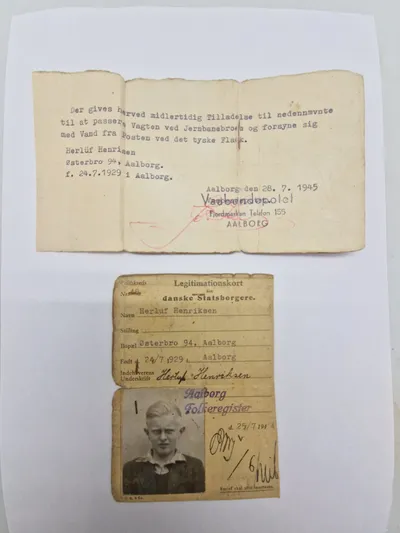 Der gives Herved midlertidig Tilladelse til nedennævnte
til at passere Vagten ved Jernbanebroen og fornyne sig
med Vand fra Posten ved det tyske Flak.
Herlüf Henriksen
Østerbro 94. Aalborg.
f. 24.7.1929 i Aalborg.
Aalborg den 28. 7. 1945
Telefon 155
AALBORG
Legitimationskort
for
danske Statsborgere.
Navn Herluf Henriksen
Stilling
Bopæl Østerbro 94. Aalborg
Født d. 24/7 1929. i Aalborg
Indehaverens
Underskrift Herluf Henriksen
Aalborg
Folkeregister